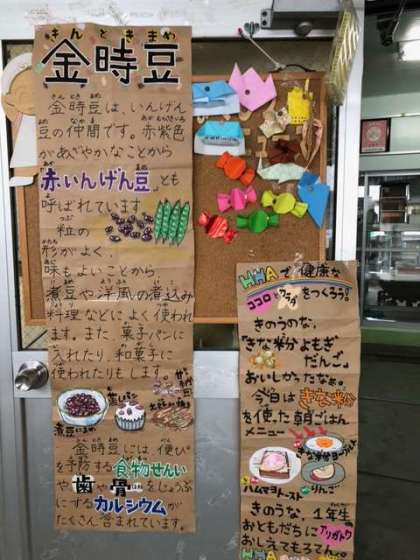 きんときまめ
金時豆
金時豆は、いんげん
豆の仲間です。赤紫色
があざやかなことから
「赤いんげん豆」とも
呼ばれています。
粒の
形がよく、
味もよいことから、
煮豆や洋風の煮込み
料理などによく使われ
ます。また、菓子パンに
入れたり、和菓子に
使われたりもします。
煮豆
金時豆には、便ぴ
を予防する食物せんい
や歯や骨をじょうぶ
にするカルシウムが
たくさん含まれています。
HHAで健康な
ココロとカラダをつくろう。
きのうのな、
「きな粉よもぎ
だんご」
おいしかったなあ。
今日はきな粉
を使った朝ごはん
メニュー
ハムマヨトースト
りんご
きのうな、1年生
おともだちにアリガトウ
おしえてもろ
HHA